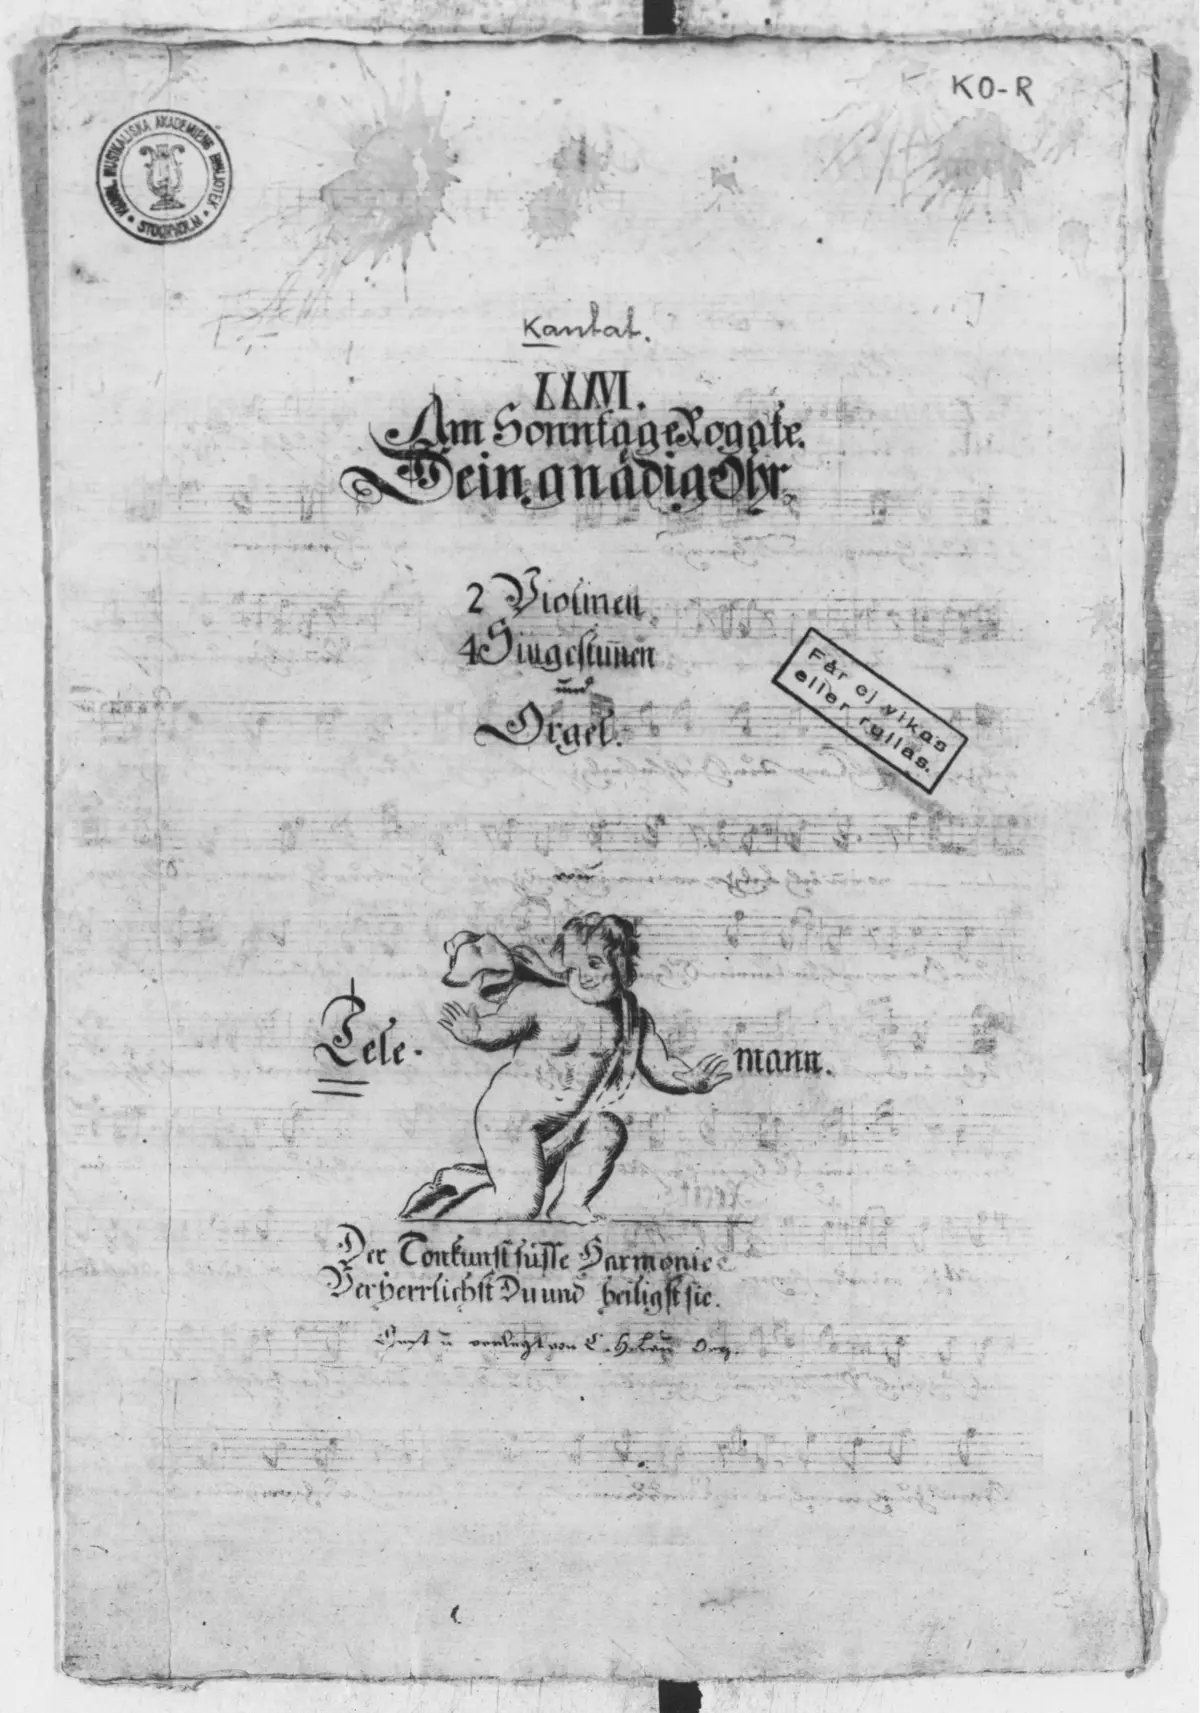 KO-R
KUNGL. MUSIKALISKA AKADEMIENS BIBLIOTEK
* STOCKHOLM *
Kantat.
XXXVI.
Am Sonntage Rogate.
Dein gnädig Ohr.
2 Violinen
4 Singestim̅en
und
Orgel.
Får ej vikas
eller rullas.
Tele-
mann.
Der Tonkunst süsse Harmonie
Verherrlichst Du und heiligst sie.
von C.